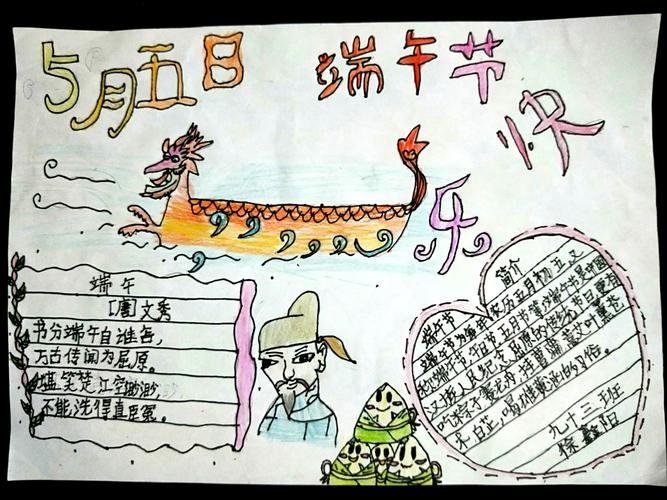 5月五日 端午节快乐
端午
[唐]文秀
节分端午自谁言,
万古传闻为屈原。
堪笑楚江空渺渺,
不能洗得直臣冤。
简介
端午节
端午节为每年农历五月初五又
称端午节、午日节、五月节等端午节是中国
汉族人民纪念屈原的传统节日更有
吃粽子赛龙舟挂菖蒲艾叶薰苍
术白芷,喝雄黄酒的习俗。
九十三班
徐鑫